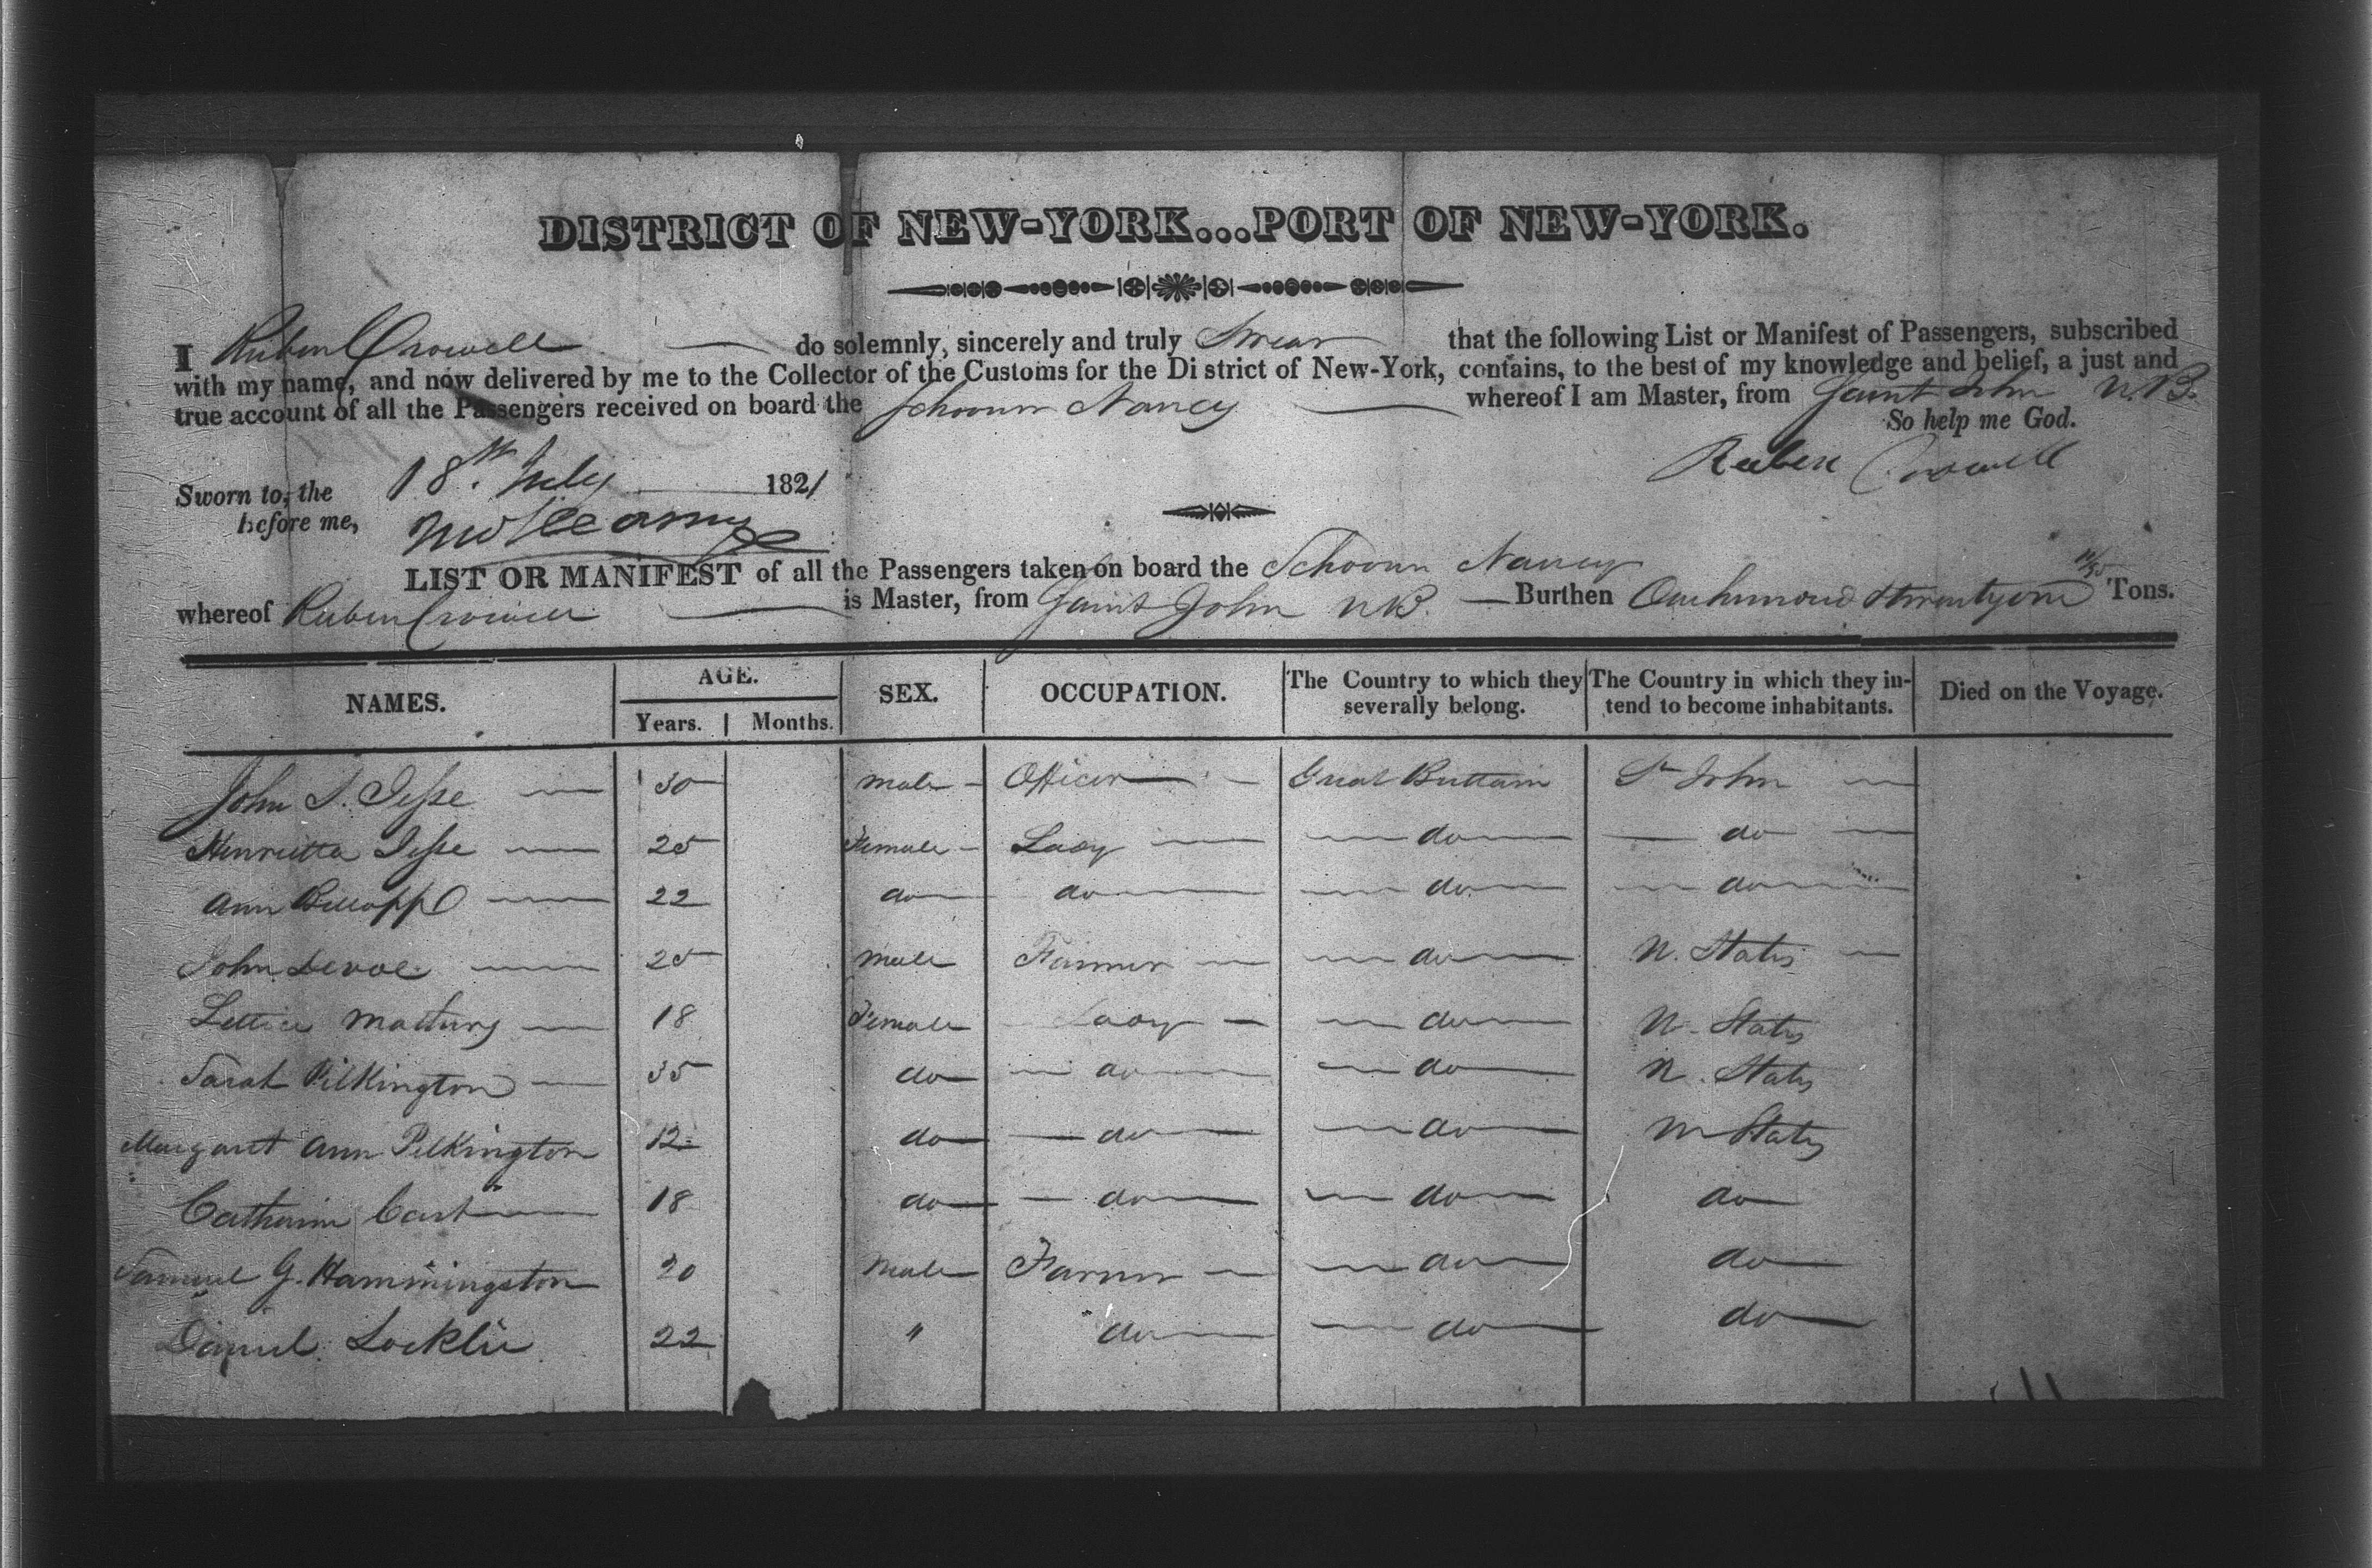 DISTRICT OF NEW-YORK...PORT OF NEW-YORK.
I Ruben Crowell do solemnly, sincerely and truly Swear that the following List or Manifest of Passengers, subscribed
with my name, and now delivered by me to the Collector of the Customs for the Di strict of New-York, contains, to the best of my knowledge and belief, a just and
true account of all the Passengers received on board the Schooner Nancy whereof I am Master, from Saint John N.B.
So help me God.
Sworn to, the 18th July 1821
Reuben Crowell
before me,
LIST OR MANIFEST of all the Passengers taken on board the Schooner Nancy
whereof Ruben Crowell is Master, from Saint John NB. Burthen One hundred & twenty one Tons.
NAMES. AGE. SEX. OCCUPATION. The Country to which they severally belong. The Country in which they in-tend to become inhabitants. Died on the Voyage.
Years. Months.
John S. Jesse 30 male Officer Great Brittain St John
Henrietta Jesse 25 Female Lady do do
Ann Billopp 22 do do do do
John Devoe 25 male Farmer do U. States
Lettice 18 Female Lady do U. States
Sarah Pilkington 35 do do do U. States
Margaret Ann Pilkington 12 do do do U States
Catharine 18 do do do do
Samuel G. Hammingston 20 Male Farmer do do
Daniel Locklie 22 " do do do